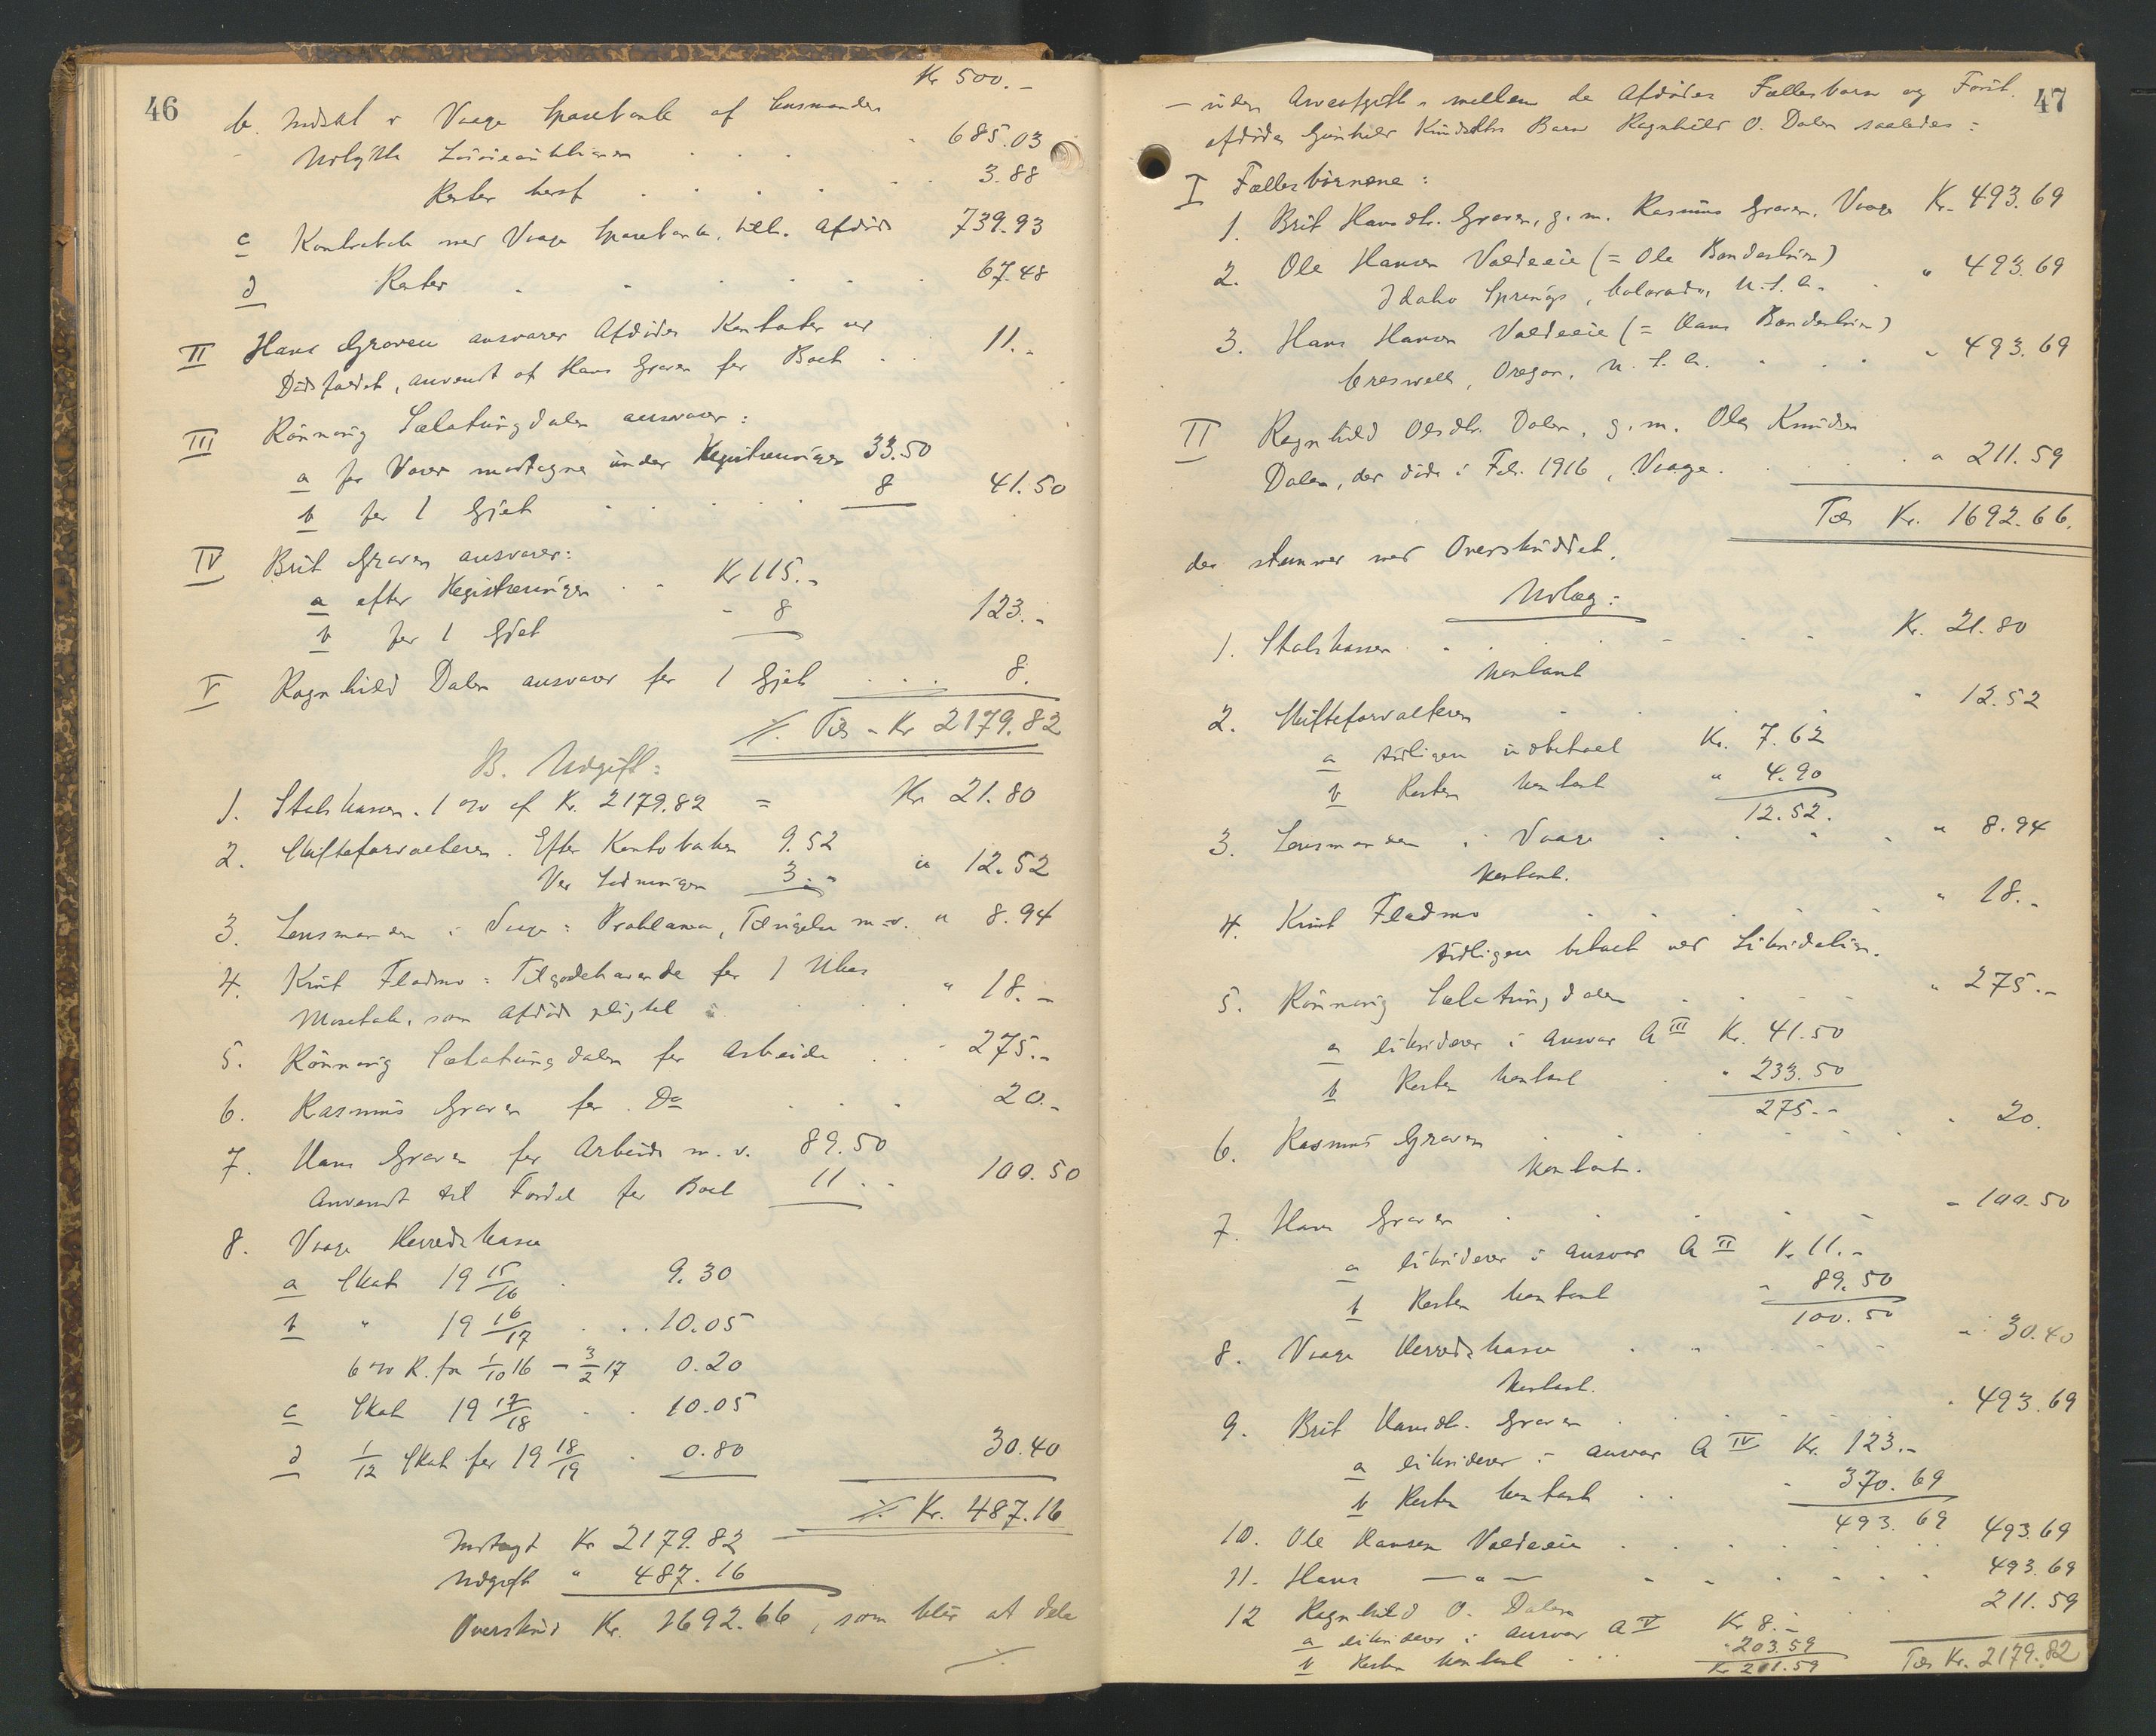 46
Kr 500.-
b. Indsat i Vaage Sparebank af Lensmanden
Udbytte Løsøreauktionen 685.03
Renter heraf 3.88
c Kontrabok med Vaage Sparebank, tilh. Afdøde 739.93
d Renter 67.48
II Hans Graven ansvarer Afdødes Kontanter ved
Dødsfaldet, anvendt af Hans Graven for Boet 11.-
III Rønnaug Sælatungdalen ansvarer:
a for Varer modtagne under Registreringen 33.50
b for 1 Gjet 8 41.50
IV Brit Graven ansvarer:
a efter Registreringen Kr 115.-
b for 1 Gjet - 8 123.-
V Ragnhild Dalen ansvarer for 1 Gjet 8.
Tils. Kr 2179.82
B. Udgift:
1. Statskassen. 1 % af Kr. 2179.82 = Kr 21.80
2. Skifteforvalteren. Efter Kontoboken 9.52
Ved Lodningen 3.- " 12.52
3. Lensmanden i Vaage: Proklama, Tilsigelse m.v. " 8.94
4. Knut Fladmo: Tilgodehavende for 1 Uhr
som Afdøde pligtet " 18.-
5. Rønnaug Sælatungdalen for Arbeide 275.-
6. Rasmus Graven for Do 20.-
7. Hans Graven for Arbeide m.v. 89.50
Anvendt til Fordel for Boet 11.- 100.50
8. Vaage Herredskasse
a Skat 19 15/16 9.30
b " 19 16/17 10.05
6 % R. fra 1/10 16 - 3/2 17 0.20
c Skat 19 17/18 10.05
d 1/12 Skat for 19 18/19 0.80 30.40
Kr. 487.16
Indtægt Kr 2179.82
Udgift " 487.16
Overskud Kr. 1692.66, som blir at dele
47
- uden Arveafgift - mellem de Afdødes Fællesbarn og Forut
afdøde Gunhild Knudsdtrs Barn Ragnhild O. Dalen saaledes:
I Fællesbørnene:
1. Brit Hansdtr. Graven, g.m. Rasmus Graven, Vaage Kr. 493.69
2. Ole Hansen Valdeeie (= Ole Bondeslim)
Idaho Springs, Colorado, U.S.A. " 493.69
3. Hans Hansen Valdeeie (= Hans Bondeslim)
Creswell, Oregon, U.S.A. " 493.69
II Ragnhild Olsdtr. Dalen, g.m. Ole Knudsen
Dalen, der døde i Feb. 1916, Vaage. " 211.59
Tils Kr. 1692.66.
der stemmer med Overskuddet.
Udlæg:
1. Statskassen Kr. 21.80
kontant
2. Skifteforvalteren " 12.52
a tidligere indbetalt Kr. 7.62
b Resten kontant " 4.90
12.52.
3. Lensmanden i Vaage " 8.94
kontant.
4. Knut Fladmo " 18.-
tidligere betalt ved Likvidation.
5. Rønnaug Sælatungdalen " 275.-
a likviderer i Ansvar A III Kr. 41.50
b Resten kontant " 233.50
275.-
6. Rasmus Graven " 20.
kontant.
7. Hans Graven - 100.50
a likviderer i Ansvar A II Kr. 11.-
b Resten kontant - 89.50
100.50
8. Vaage Herredskasse " 30.40
kontant.
9. Brit Hansdtr. Graven " 493.69
a likviderer i Ansvar A IV Kr. 123.-
b Resten kontant " 370.69
493.69
10. Ole Hansen Valdeeie 493.69
11. Hans —"— 493.69
12 Ragnhild O. Dalen 211.59
a likviderer i Ansvar A V Kr 8.-
b Resten kontant " 203.59
Kr 211.59 Tils Kr. 2179.82